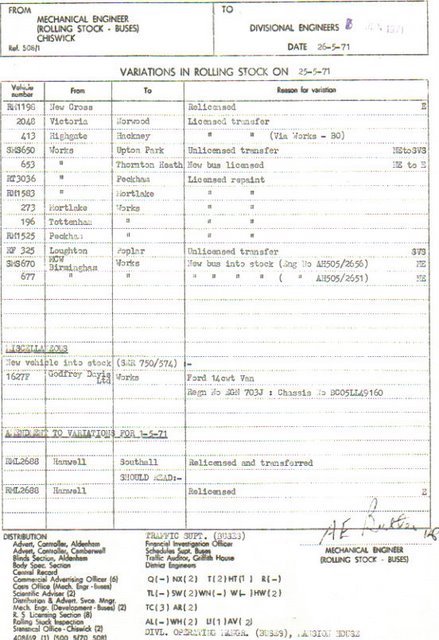 FROM
MECHANICAL ENGINEER
(ROLLING STOCK - BUSES)
CHISWICK
Ref. 508/1
TO
DIVISIONAL ENGINEERS
DATE 26-5-71
VARIATIONS IN ROLLING STOCK ON 25-5-71
Vehicle number From To Reason for variation
RM1198 New Cross Relicensed E
2048 Victoria Norwood Licensed transfer
413 Highgate Hackney " " (Via Works - BO)
SMS650 Works Upton Park Unlicensed transfer NEtoSVS
653 " Thornton Heath New bus licensed NE to E
RT3036 " Peckham Licensed repaint
RM1583 " Mortlake " "
273 Mortlake Works " "
196 Tottenham " " "
RM1525 Peckham " " "
RF 325 Loughton Poplar Unlicensed transfer SVS
SMS670 MCW Birmingham Works New bus into stock (Eng No AH505/2656) NE
677 " " " " " " ( " AH505/2651) NE
MISCELLANEOUS
New vehicle into stock (SRR 750/574) :-
1627F Godfrey Davis Ltd Works Ford 14cwt Van
Regn No EGN 703J : Chassis No BC05LL49160
AMENDMENT TO VARIATIONS FOR 1-5-71
RML2688 Hanwell Southall Relicensed and transferred
SHOULD READ:-
RML2688 Hanwell Relicensed E
MECHANICAL ENGINEER
(ROLLING STOCK - BUSES)
DISTRIBUTION
Advert. Controller, Aldenham
Advert. Controller, Camberwell
Blinds Section, Aldenham
Body Spec. Section
Central Record
Commercial Advertising Officer (6)
Costs Office (Mech. Engr - buses)
Scientific Adviser (2)
Distribution & Advert. Svce. Mngr.
Mech. Engr. (Development - Buses) (2)
R. S. Licensing Section (8)
Rolling Stock Inspection
Statistical Office - Chiswick (2)
TRAFFIC SUPT. (BUSES)
Financial Investigation Officer
Schedules Supt. Buses
Traffic Auditor, Griffith House
District Engineers
Q(-) NX(2) T(2)HT(1) R(-)
TL(-)SW(2)WN(-) WL- )HW(2)
TC(3) AR(2)
AL(-)WH(2) U(1)AV(2)
DIVL. OPERATING MANGR. (BUSES), MANSION HOUSE